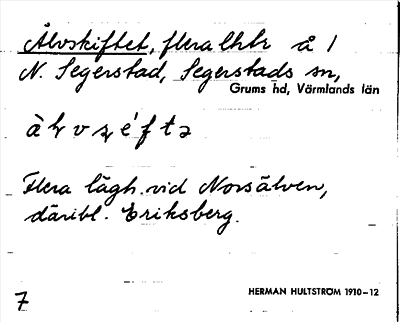 Älvskiftet, flera lhtr å /
N. Segerstad, Segerstads sn,
Grums hd, Värmlands län
Flera lägh. vid Norsälven,
däribl. Eriksberg.
HERMAN HULTSTRÖM 1910–12
7